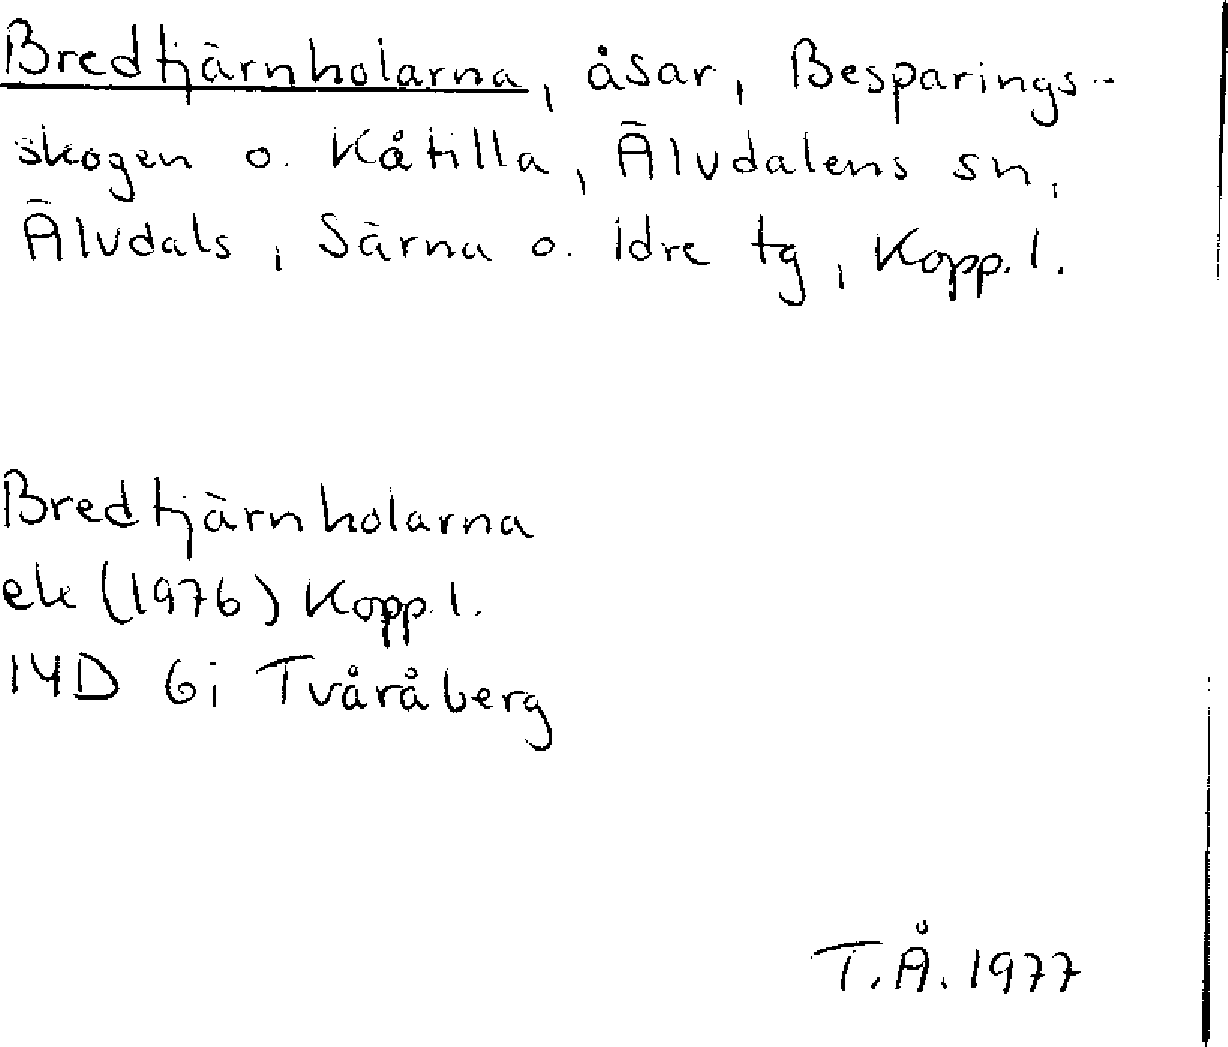 Bredtjärnholarna, åsar, Besparings-
skogen o. Kåtilla, Älvdalens sn,
Älvdals, Särna o. Idre tg, Kopp. l.
Bredtjärnholarna
ek (1976) Kopp. l.
14D 6i Tvåråberg
T.Å. 1977